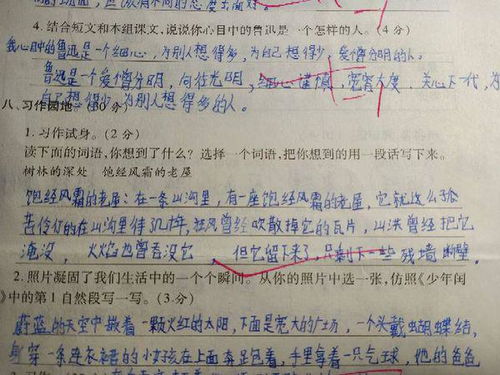 4. 结合短文和本组课文,说说你心目中的鲁迅是一个怎样的人。(4分)
我心目中的鲁迅是一个细心,为别人想得多,为自己想得少,爱憎分明的人。
鲁迅是一个爱憎分明,向往光明,细心谨慎,宽宏大度,关心下一代,为
自己想得少,为别人想得多的人。
八、习作园地。(30分)
1. 习作试身。(2分)
读下面的词语,你想到了什么?选择一个词语,把你想到的用一段话写下来。
树林的深处 饱经风霜的老屋
饱经风霜的老屋:在一条山沟里,有一座饱经风霜的老屋,它就这么孤
苦伶仃的在山沟里待几十年,狂风曾经吹散掉它的瓦片,山洪曾经把它
淹没,火焰也曾吞没它,但它留下来了,只剩下一些残墙断壁。
2. 照片凝固了我们生活中的一个个瞬间。从你的照片中选一张,仿照《少年闰
中的第1自然段写一写。(3分)
蔚蓝的天空中散着一颗火红的太阳,下面是宽大的广场,一个头戴蝴蝶结,
身穿一条连衣裙的小女孩在上面奔跑着,手里拿着一只气球,他的爸爸